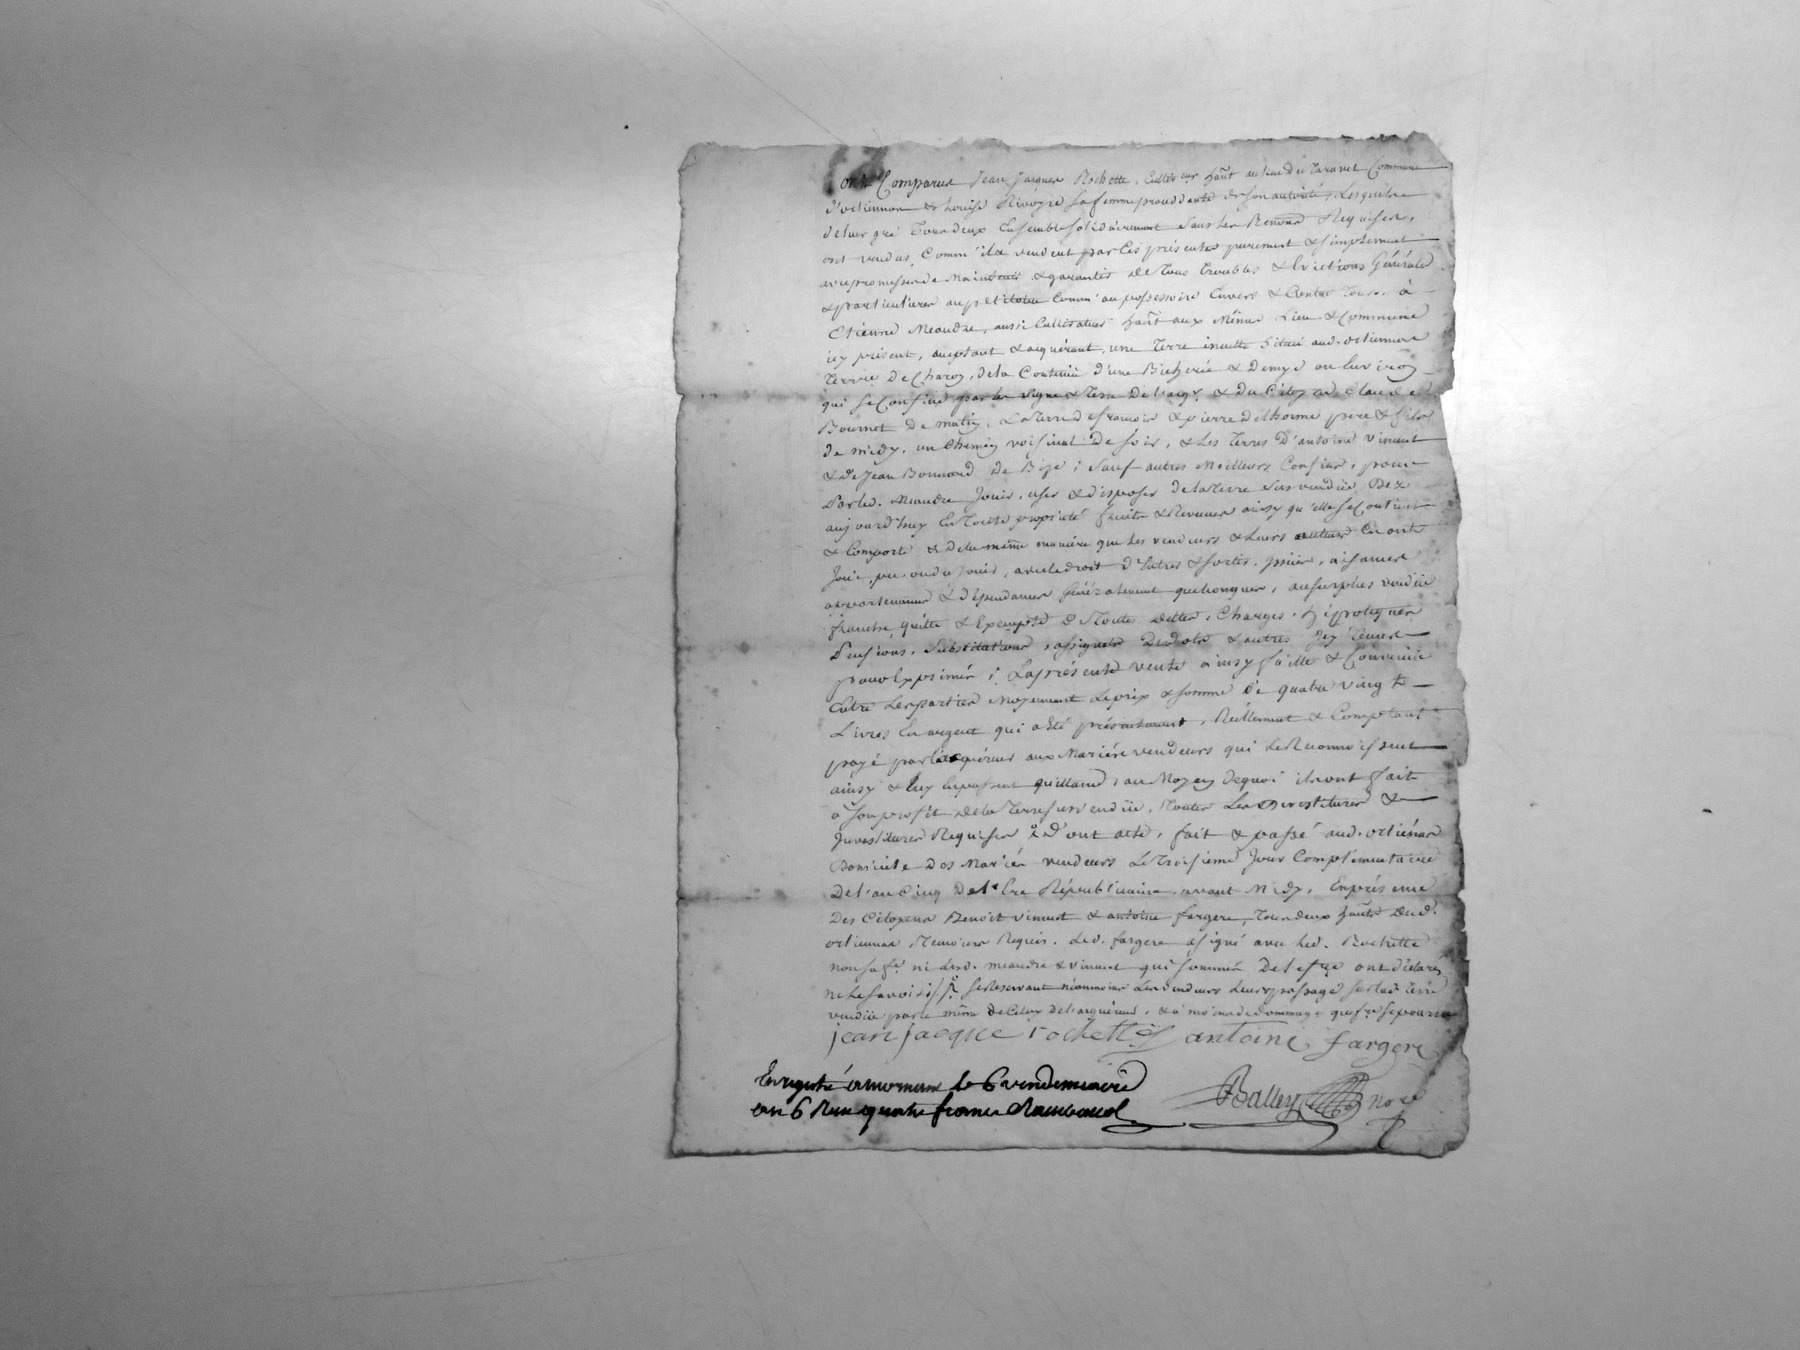 ont Comparus Jean Jacques Rochette, Cultivr habt au lieu de Taravet Commune
d'octiennar & Louise Rivoyre sa femme procedante de son autorité, Lesquels
de leur gré Tous deux Ensemble solidairement sous les Renond Requises,
ont vendus Comm'ils vendent par Ces présentes purement & simplement
avec promesse de Maintenir & garantir de Tous Troubles & Evictions Générale
& particulieres au petitoire Comm'au possessoire Envers & Contre Tous. à
Etienne Meaudre, aussi Cultivateur habt aux Mêmes Lieu & Commune
icy présent, aceptant & acquérant, une Terre inculte Située aud. octiennar
Terroir De Charoy, de la Contenüe d'une Bicherée & Demye ou Environ
qui se Confine par les vigne & Terre De l'acqr. & du Citoyen Claude
Bournet De matin, La terre de francois & pierre Delhorme pere & fils
de midy, un Chemin voisinal De soir, & Les Terres D'antoine vincent
& de Jean Bonnard De Bize; Sauf autres Meilleurs Confins, pour
Par led. Meaudre Jouir, user & disposer de la Terre sus vendüe Dez
aujourd'huy En Toute propriété fruits & Revenus ainsy qu'elle se Contient
& Comporte & de la même maniére que Les vendeurs & Leurs auteurs En ont
Joüi, pu ou du jouir, avec le droit d'Entrées & sorties, issües, aisances
appartenances & dépendances Généralement quelconques, au surplus vendüe
franche, quitte & Exempte de Toutes dettes, Charges, hippoteques
Pensions, Substitutions, assignats De dote & autres icy Tenues
pour Exprimés; La présente vente ainsy faitte & Convenüe
Entre Les parties Moyennant Le prix & somme de quatre vingt
Livres En argent qui a Eté présentement, Réellement & Comptant
payé par l'acquéreur aux Mariés vendeurs qui Le Reconnoissent
ainsy & Luy En passent quittance, au Moyen Dequoi ils ont fait
à son profit de la Terre sus vendüe, Toutes Les Devestitures &
Investitures Requises & D'ont acte, fait & passé aud. octiénar
Domicile Des Mariés vendeurs Le Troisieme Jour Complémentaire
De l'an Cinq De l'Ere Républicaine, avant Midy, En présence
Des Citoyens Benoit vincent & antoine fargere, Tous deux habts Dud.
octiennar, Temoins Requis. Led. fargere a signé avec Led. Rochette
non sa fe. ni Lesd. meaudre & vincent qui sommés De le fre ont déclarés
ne Le savoir // se Reservant néanmoins Les vendeurs Leurs passage sur lad Terre
vendüe par le même De Celuy De l'acquéreur, & à moins de dommage que fre se pourra
jean jacque rochette antoine fargere
Enregistré a le 6 vendemiaire
an 6 Reçu quatre francs Raimbaud
Balley nore